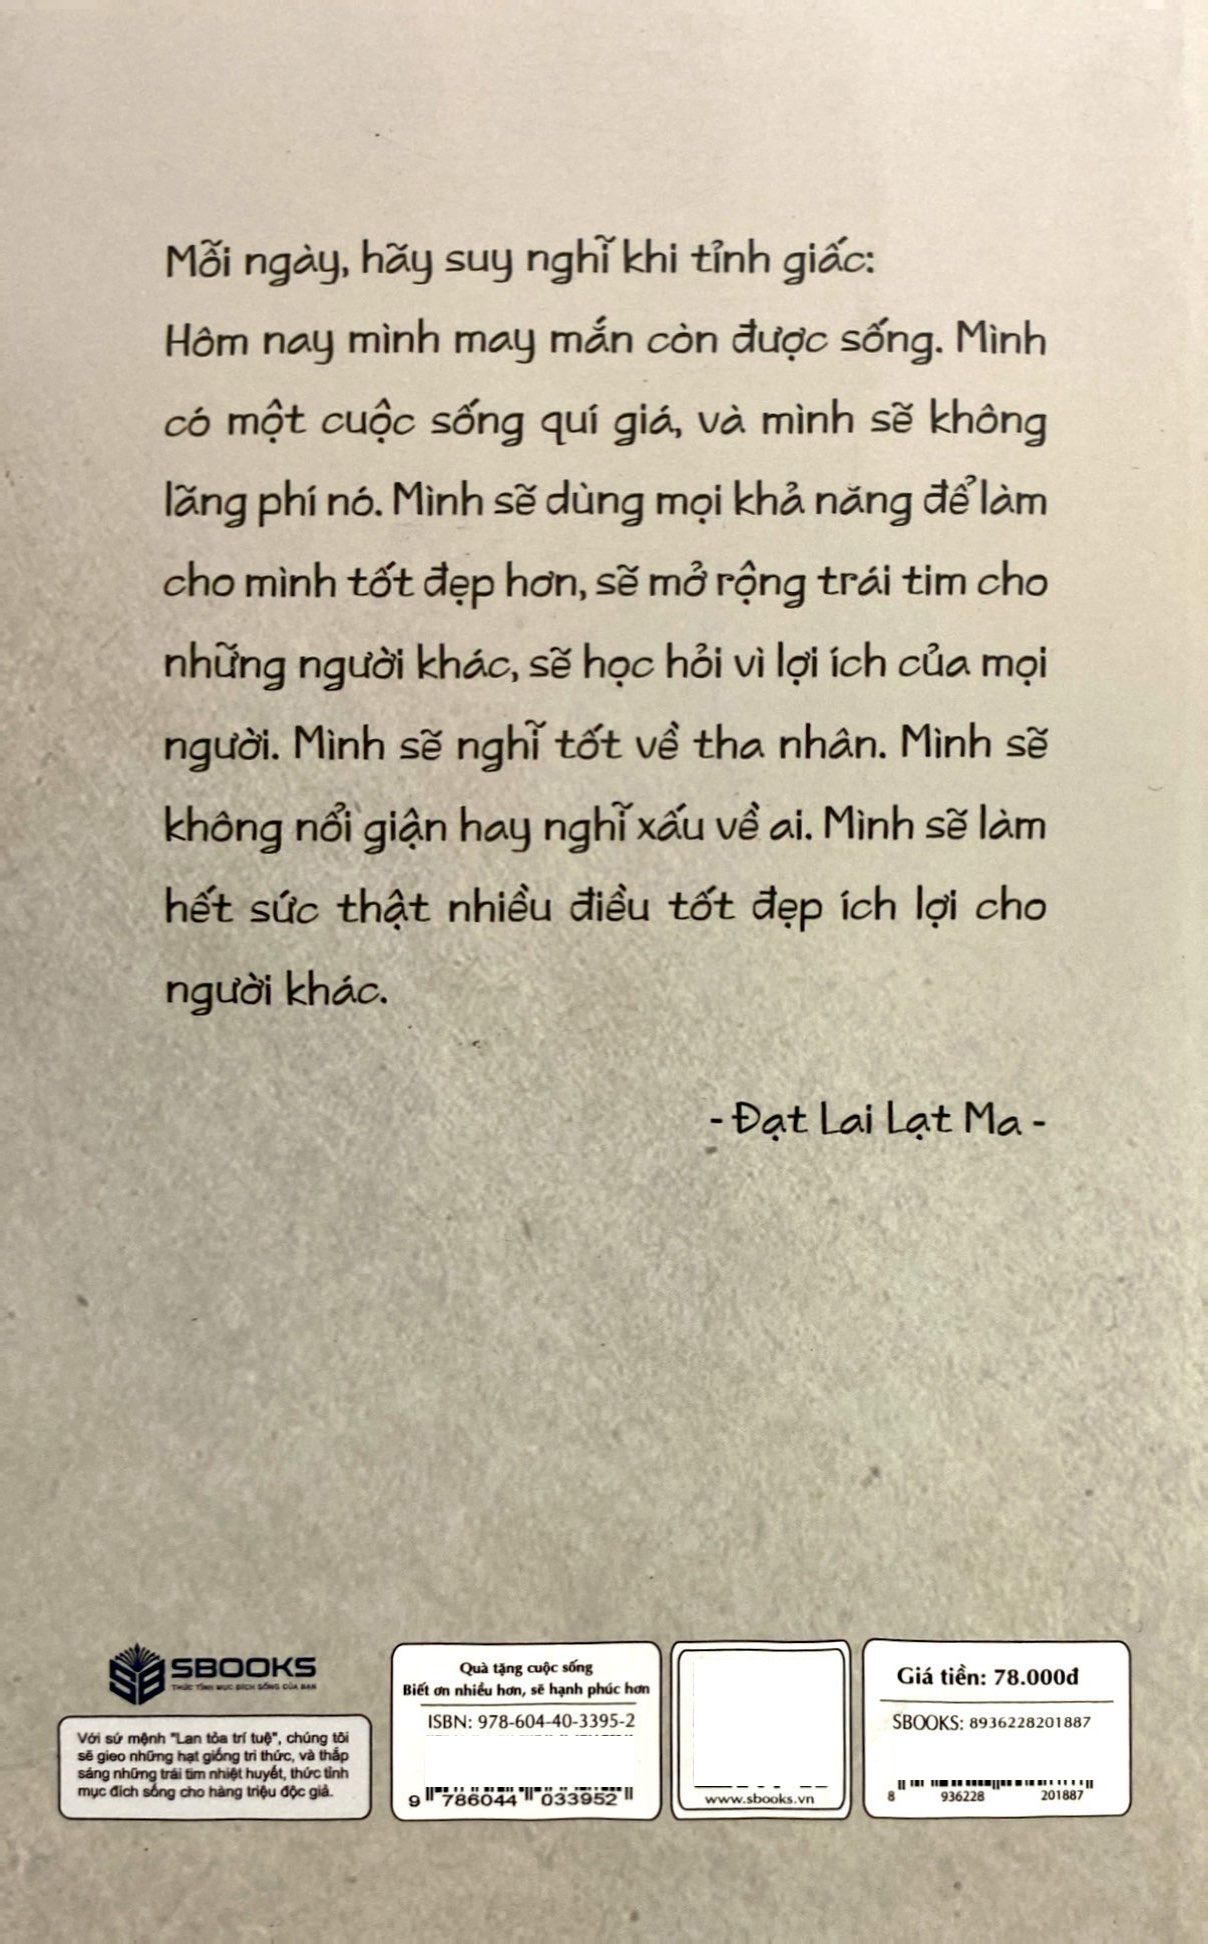 Mỗi ngày, hãy suy nghĩ khi tỉnh giấc:
Hôm nay mình may mắn còn được sống. Mình
có một cuộc sống quí giá, và mình sẽ không
lãng phí nó. Mình sẽ dùng mọi khả năng để làm
cho mình tốt đẹp hơn, sẽ mở rộng trái tim cho
những người khác, sẽ học hỏi vì lợi ích của mọi
người. Mình sẽ nghĩ tốt về tha nhân. Mình sẽ
không nổi giận hay nghĩ xấu về ai. Mình sẽ làm
hết sức thật nhiều điều tốt đẹp ích lợi cho
người khác.
- Đạt Lai Lạt Ma -
SBOOKS
THỨC TỈNH MỤC ĐÍCH SỐNG CỦA BẠN
Với sứ mệnh "Lan tỏa trí tuệ", chúng tôi
sẽ gieo những hạt giống tri thức, và thắp
sáng những trái tim nhiệt huyết, thức tỉnh
mục đích sống cho hàng triệu độc giả.
Quà tặng cuộc sống
Biết ơn nhiều hơn, sẽ hạnh phúc hơn
ISBN: 978-604-40-3395-2
9 786044 033952
www.sbooks.vn
Giá tiền: 78.000đ
SBOOKS: 8936228201887
8 936228 201887